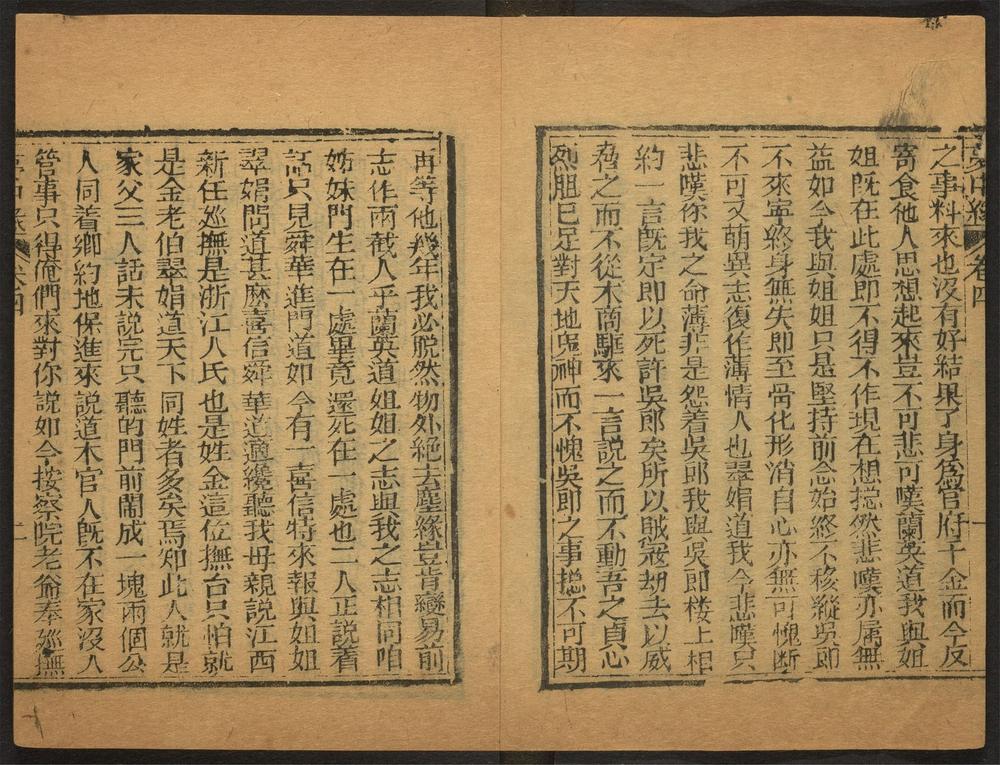 夢中緣 卷四 一
之事料來也沒有好結果了身為官府千金而今反
寄食他人思想起來豈不可悲可嘆蘭英道我與姐
姐既在此處即不得不作現在想揔然悲嘆亦屬無
益如今我與姐姐只是堅持前念始終不移縱吳郎
不來寧終身無失即至骨化形消自心亦無可愧斷
不可又萌異志復作薄情人也翠娟道我今悲嘆只
悲嘆你我之命薄非是怨着吳郎我與吳郎楼上相
約一言既定即以死許吳郎矣所以賊寇劫去以威
脅之而不從木商駆來一言說之而不動吾之貞心
烈胆已足對天地鬼神而不愧吳郎之事揔不可期
再等他幾年我必脱然物外絕去塵緣豈肯變易前
志作兩截人乎蘭英道姐姐之志與我之志相同咱
姊妹門生在一處畢竟還死在一處也二人正説着
話只見舜華進門道如今有一喜信特來報與姐姐
翠娟問道甚麼喜信舜華道適纔聽我母親説江西
新任廵撫是浙江人氏也是姓金這位撫台只怕就
是金老伯翠娟道天下同姓者多矣焉知此人就是
家父三人話未説完只聽的門前鬧成一塊兩個公
人同着鄉約地保進來説道木官人既不在家沒人
管事只得俺們來對你説如今按察院老爺奉廵撫
卷四 二